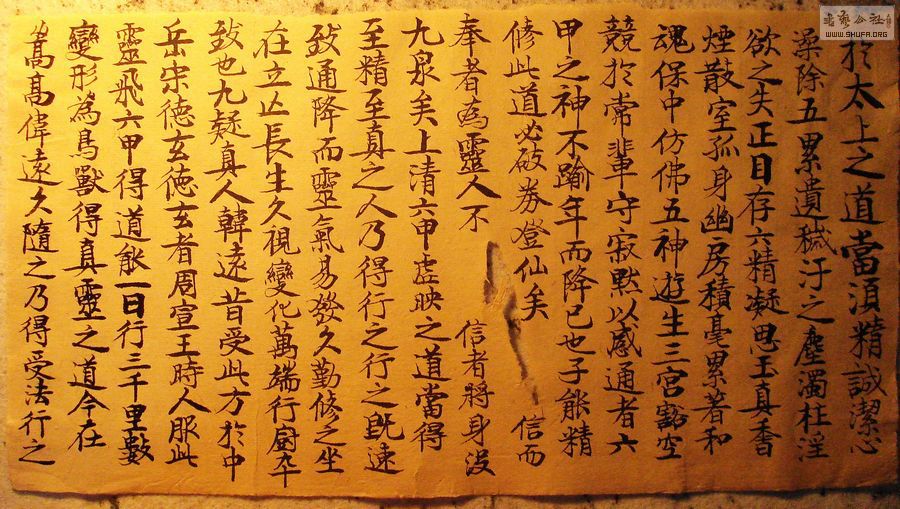 於太上之道當須精誠潔心
澡除五累遺穢汙之塵濁杜淫
欲之失正目存六精凝思玉真香
煙散室孤身幽房積毫累著和
魂保中仿佛五神遊生三宮豁空
競於常輩守寂默以感通者六
甲之神不踰年而降已也子能精
修此道必破券登仙矣 信而
奉者為靈人不 信者將身沒
九泉矣上清六甲虛映之道當得
至精至真之人乃得行之行之既速
致通降而靈氣易發久勤修之坐
在立亡長生久視變化萬端行廚卒
致也九疑真人韓遠昔受此方於中
岳宋德玄德玄者周宣王時人服此
靈飛六甲得道能一日行三千里數
變形為鳥獸得真靈之道今在
嵩高偉遠久隨之乃得受法行之
書藝公社
WWW.SHUFA.ORG